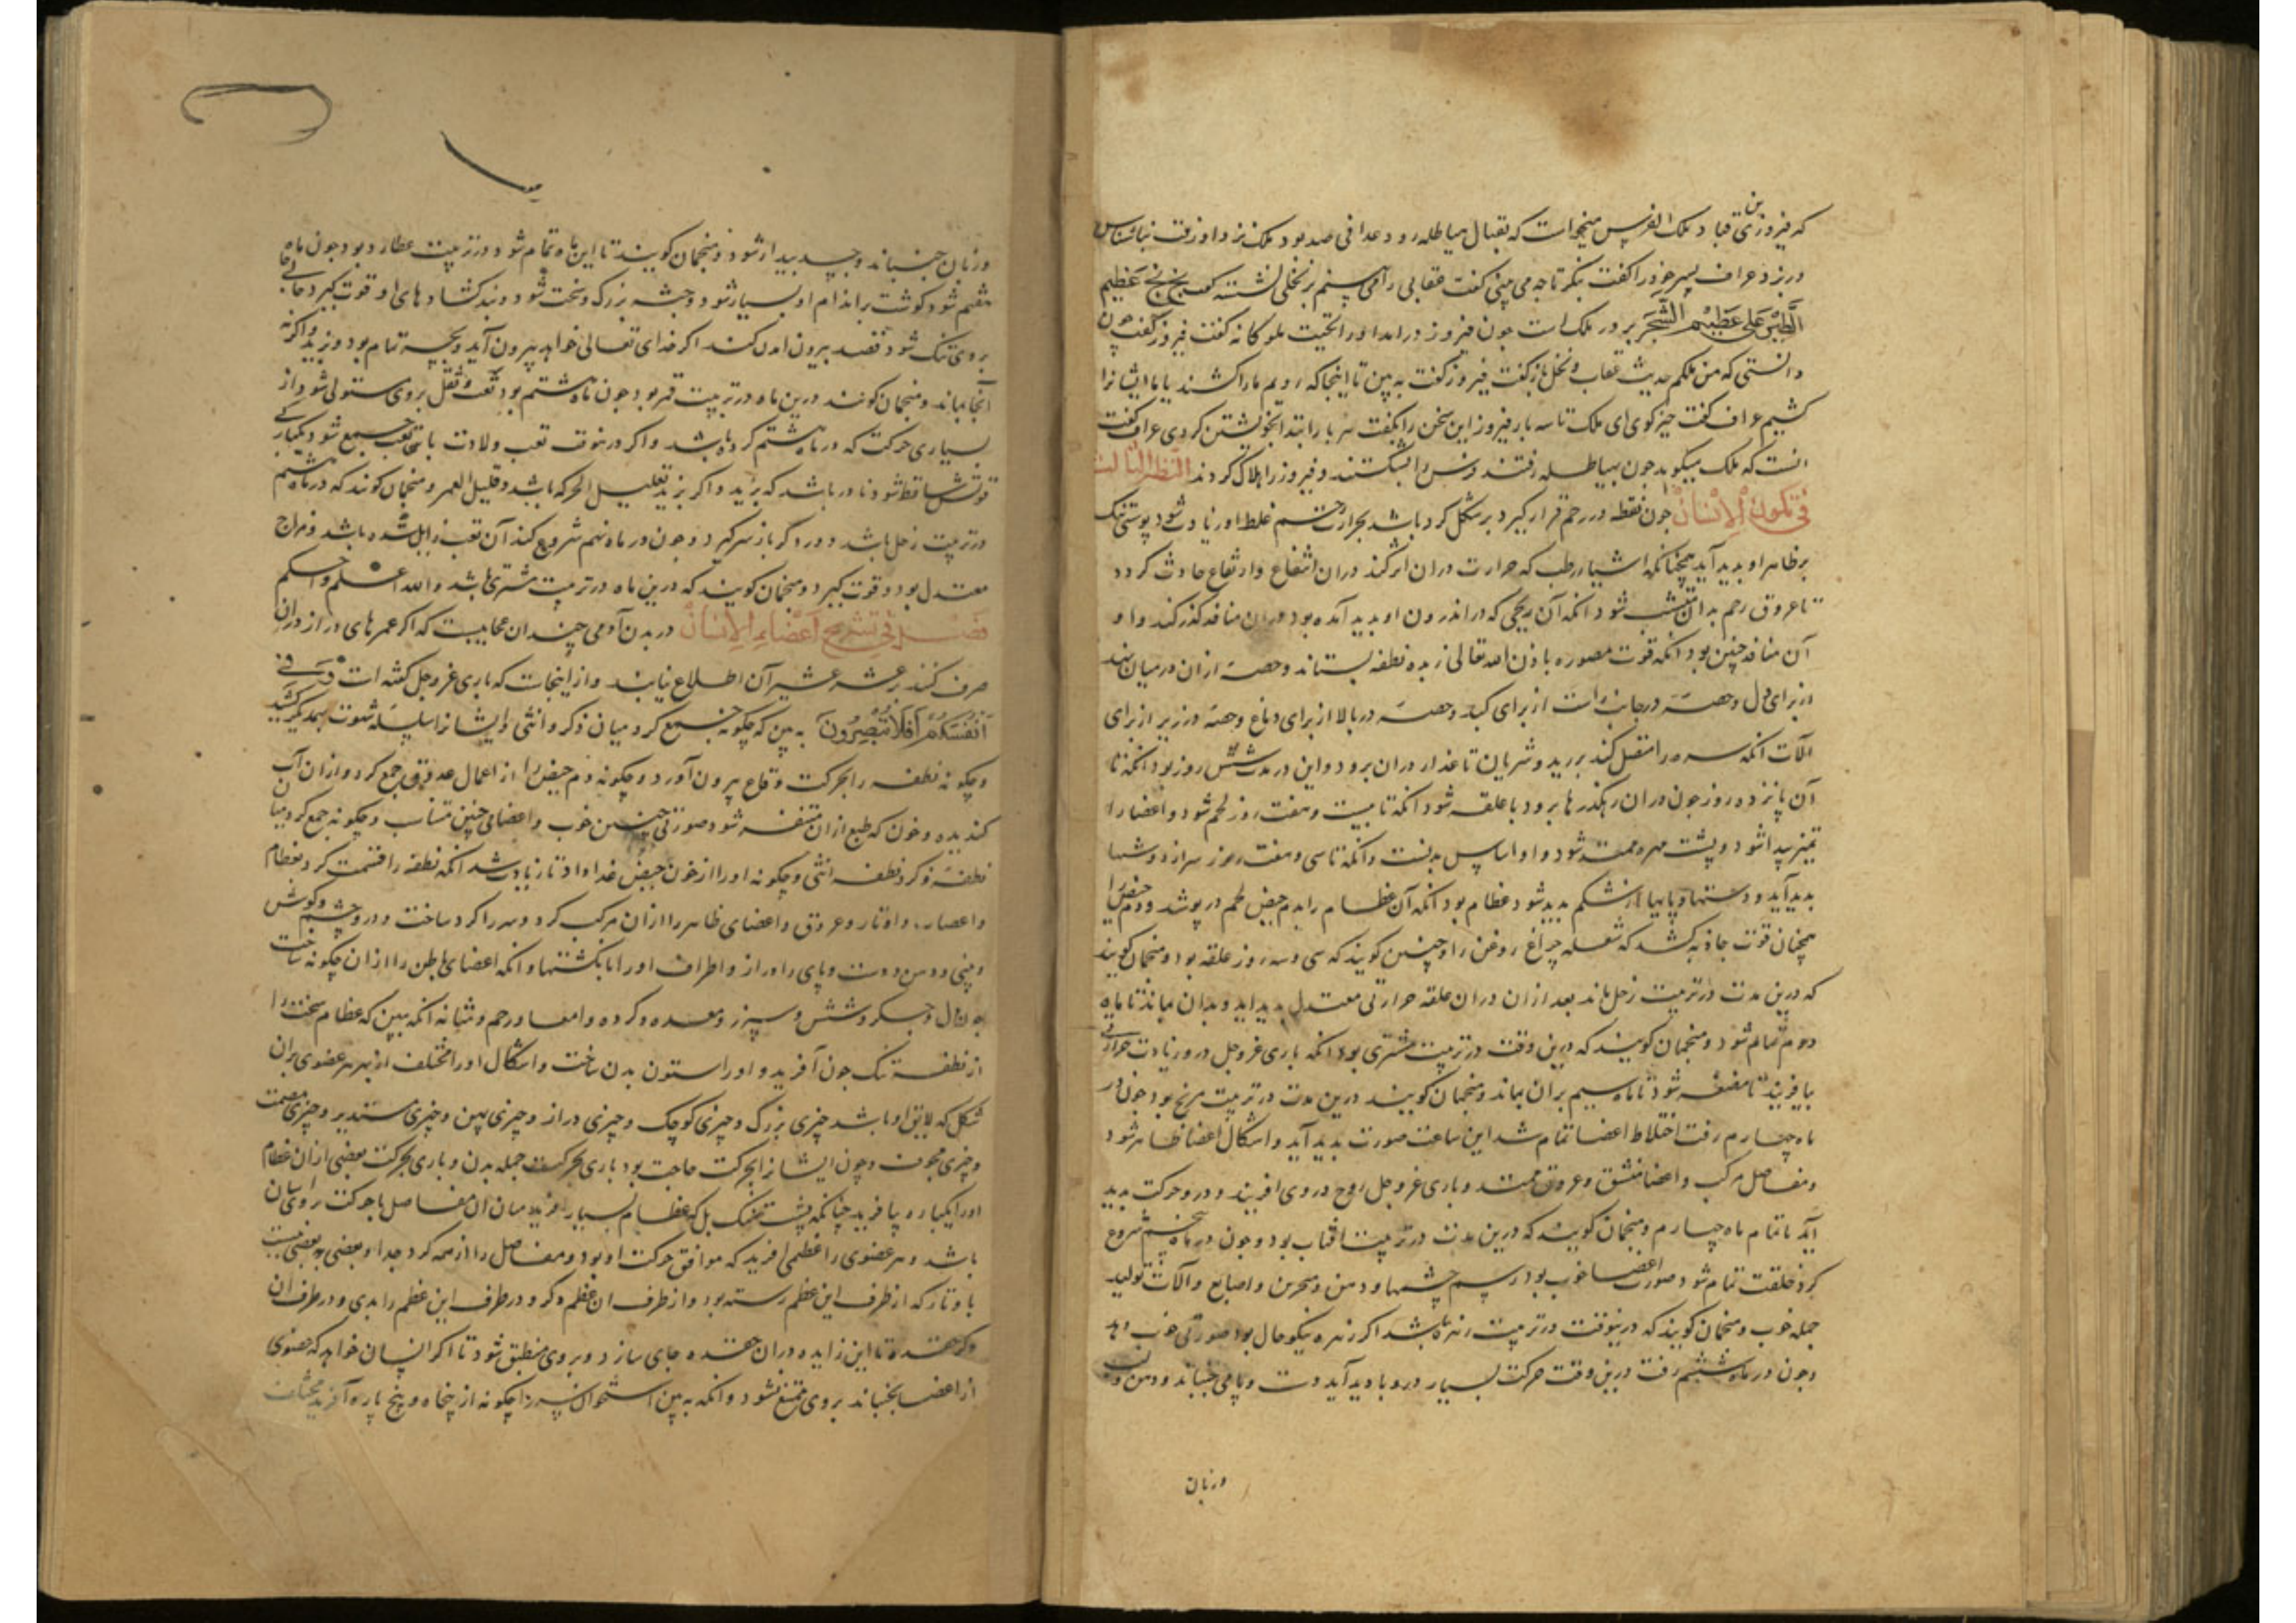 که فیروز بن قباد ملک الفرس میخواست که بقتال هیاطله رود عرافی صد بود ملک نزد او رفت
در بزد عراف پسر خود را کفت بنکر تا چه می بینی کفت عقابی را می بینم بر نخلی نشسته کفت بخ بخ عظیم
الطیر علی عظیم الشجر بر در ملک است چون فیروز درامد او را تحیت ملوکانه کفت فیروز کفت چون
دانستی که من ملکم حدیث عقاب و نخل باز کفت فیروز کفت به بین تا اینجا که رویم ما را کشند یا ما ایشانرا
کشیم عراف کفت خیر کوی ای ملک تا سه بار فیروز این سخن را بکفت هر بار ابتدا بخویشتن کردی عراف کفت
انست که ملک میکوید چون بهیاطله رفتند و بشکستند و فیروز را هلاک کردند النظر الثالث
فی تکون الانسان چون نطفه در رحم قرار کیرد بر شکل کره باشد بحرارت رحم غلظ او زیادت شود پوستی تنک
بر ظاهر او بدید آید همچنانکه اشیاء رطب که حرارت دران اثر کند دران انتفاخ و ارتفاع حادث کردد
تا عروق رحم بدان متشبث شود انکه آن ریحی که در اندرون او بدید آمده بود دران منافذ کذر کند و او
آن منافذ چنین بود انکه قوت مصوره باذن الله تعالی زبده نطفه بستاند و حصهٔ ازان در میان بنهد
از برای دل و حصهٔ در جانب راست از برای کبد و حصهٔ در بالا از برای دماغ و حصهٔ در زیر از برای
الآت انکه سره را متصل کند بورید و شریان تا غذا دران برود و این در مدت شش روز بود انکه تا
آن پانزده روز چون دران رهکذرها برود با علقه شود انکه تا بیست و هفت روز لحم شود و اعضا را
تمیز پیدا شود و پشت مهره ممتد شود و او اساس بدنست و انکه تا سی و هفت روز سر از دوشها
بدید آید و دستها و پایها از شکم بدید شود عظام بود انکه آن عظام را بدم حیض لحم در پوشد و دم حیض را
همچنان قوت جاذبه کشد که شعله چراغ روغن را و چنین کویند که سی و سه روز علقه بود و منجمان کویند
که درین مدت در تربیت زحل باند بعد ازان دران علقه حرارتی معتدل بدید اید و بدان بماند تا ماه
دوم تمام شود و منجمان کویند که درین وقت در تربیت مشتری بود انکه باری عز و جل درو زیادت حرارتی
بیافریند تا مضغه شود تا ماه سیم بران بماند و منجمان کویند درین مدت در تربیت مریخ بود چون در
ماه چهارم رفت اختلاط اعضا تمام شد این ساعت صورت بدید آید و اشکال اعضا ظاهر شود
و مفاصل مرکب و اعضا منشق و عروق ممتد و باری عز و جل روح در وی افریند و درو حرکت بدید
آید تا تمام ماه چهارم و منجمان کویند که درین مدت در تربیت افتاب بود و چون در ماه پنجم شروع
کرد خلقت تمام شود صورت اعضا خوب بود رسم چشمها و دهن و منخرین و اصابع و الآت تولید
جمله خوب و منجمان کویند که درینوقت در تربیت زهره باشد اکر زهره نیکو حال بود صورتی خوب دهد
و چون در ماه ششم رفت درین وقت حرکت بسیار درو بادید آید دست و پا می جنباند و دهن و لب
و زبان
و زبان جنباند و چپ بیدار شود و منجمان کویند تا این ماه تمام شود در تربیت عطارد بود چون ماه
هفتم شود کوشت بر اندام او بسیار شود و جثه بزرک و سخت شود و بند کشادهای او قوت کیرد جای
بر وی تنک شود قصد بیرون امدن کند اکر خدای تعالی خواهد بیرون آید و بچه تمام بود و بزید و اکر نه
آنجا بماند و منجمان کویند درین ماه در تربیت قمر بود چون ماه هشتم بود تعب و ثقل بر وی مستولی شود از
بسیاری حرکت که در ماه هفتم کرده باشد و اکر درینوقت تعب ولادت با تعب جمع شود یکبار کی
قوتش ساقط شود نادر باشد که بزید و اکر بزید قلیل الحرکه باشد و قلیل العمر و منجمان کویند که در ماه هشتم
در تربیت زحل باشد و دور دکر باز سر کیرد و چون در ماه نهم شروع کند آن تعب زایل شده باشد و مزاج
معتدل بود و قوت کیرد و منجمان کویند که درین ماه در تربیت مشتری باشد و الله اعلم و احکم
فصل فی تشریح اعضاء الانسان در بدن آدمی چندان عجایبست که اکر عمرهای دراز دران
صرف کنند عشر عشیر آن اطلاع نیابند و از اینجاست که باری عز و جل کفته است و فی
انفسکم افلا تبصرون به بین که چکونه جمع کرد میان ذکر و انثی و ایشانرا بسلسله شهوت بهمدیکر کشید
و چکونه نطفه را بحرکت وقاع بیرون آورد و چکونه دم حیض را از اعمال عروق جمع کرد و ازان آب
کندیده و خون که طبع ازان متنفر شود صورتی چنین خوب و اعضای چنین متناسب و چکونه جمع کرد میان
نطفه ذکر و نطفه انثی و چکونه او را از خون حیض غذا داد تا زیادت شد انکه نطفه را قسمت کرد بعظام
و اعصاب و اوتار و عروق و اعضای ظاهر را ازان مرکب کرد و سر را کرد ساخت و درو چشم و کوش
و بینی و دهن و دست و پای را دراز و اطراف او را بانکشتها و انکه اعضای باطن را ازان چکونه ساخت
چون دل و جکر و شش و سپرز و معده و کرده و امعا و رحم و مثانه انکه ببین که عظام سخت را
از نطفه تنک چون آفرید و او را ستون بدن ساخت و اشکال او را مختلف از بهر هر عضوی بران
شکل که لایق او باشد چیزی بزرک و چیزی کوچک و چیزی دراز و چیزی پهن و چیزی مستدیر و چیزی مصمت
و چیزی مجوف و چون ایشانرا بحرکت حاجت بود باری بحرکت جمله بدن و باری بحرکت بعضی ازان عظام
او را یکباره بیافرید چنانکه پشت نهنک بل که عظام بسیار افرید میان ان مفاصل تا حرکت را آسان
باشد و هر عضوی را عظمی افرید که موافق حرکت او بود و مفاصل را از همه کرد جدا و بعضی به بعضی بست
با وتار که از طرف این عظم رسته بود و از طرف ان عظم دکر و در طرف این عظم زایدی و در طرف ان
دکر حفره تا این زایده دران حفره جای سازد و بر وی منطبق شود تا اکر انسان خواهد که عضوی
از اعضا بجنباند بر وی ممتنع نشود و انکه به بین استخوان سر را چکونه از پنجاه و پنج پاره آفرید